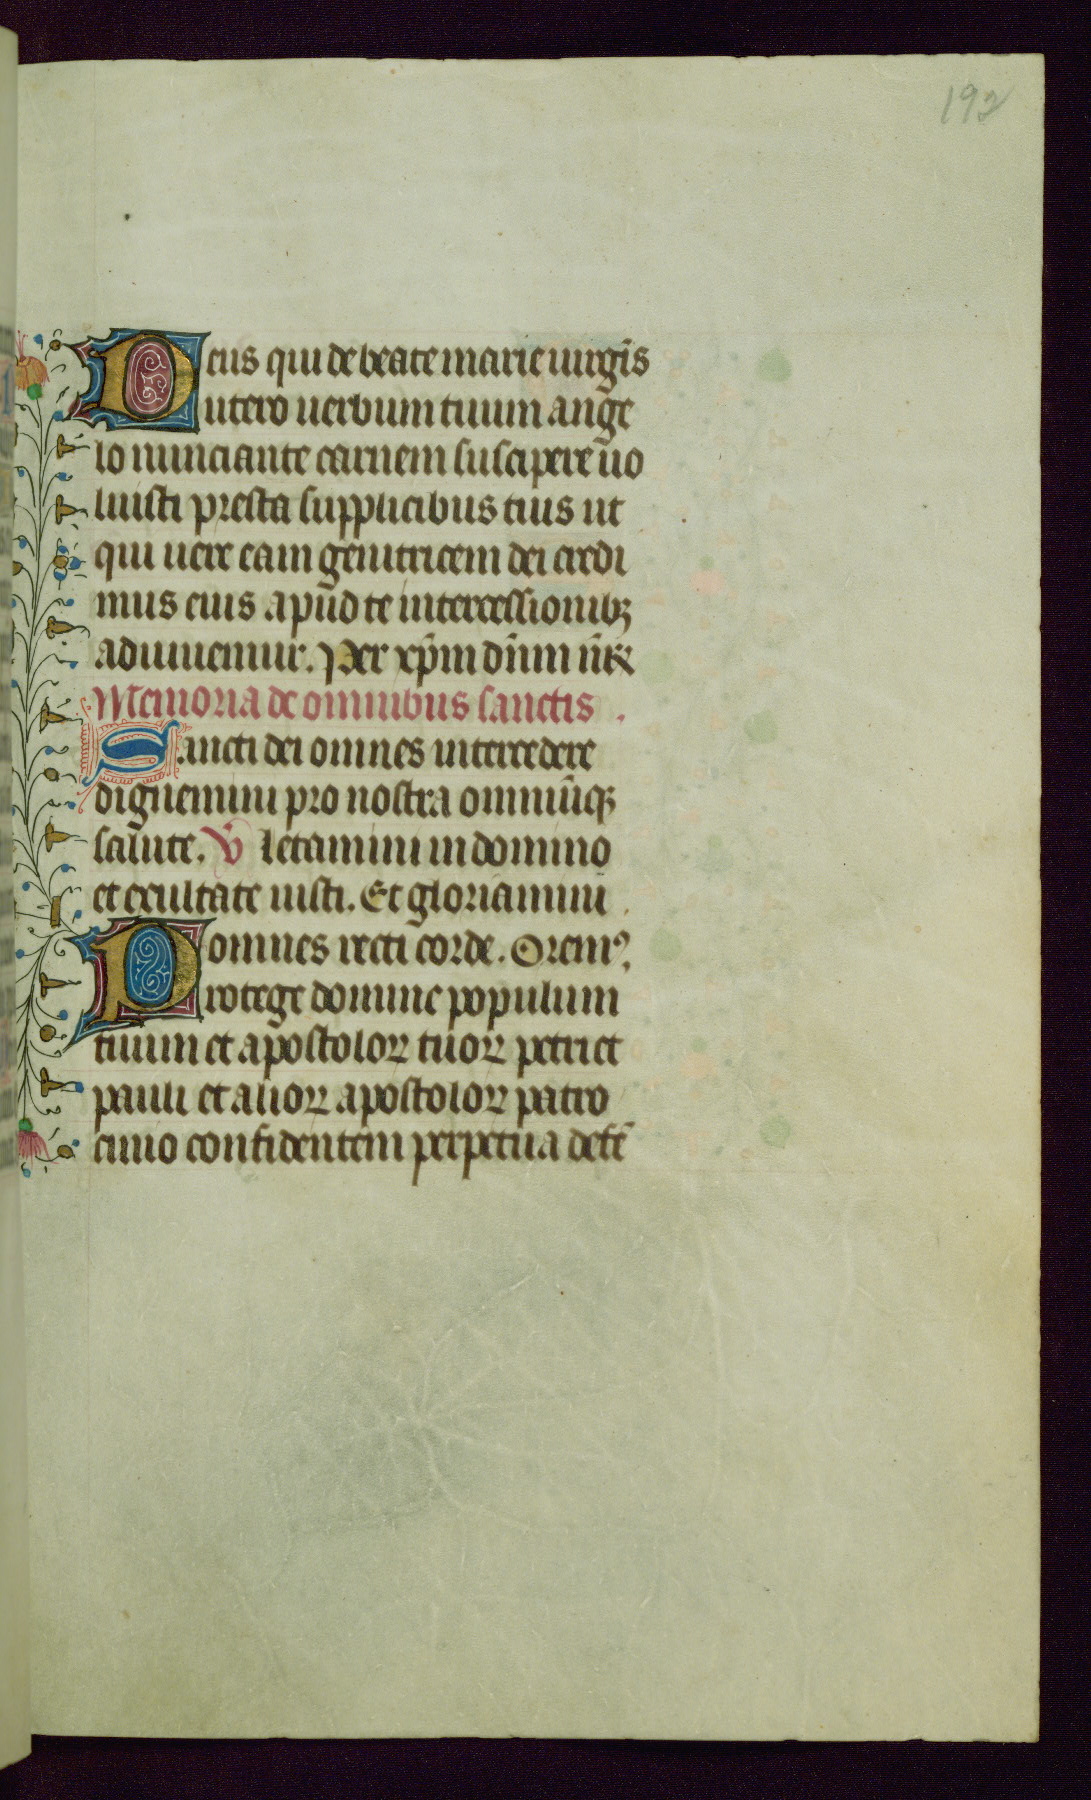 192
Deus qui de beate marie uirgīs
utero uerbum tuum ange
lo nunciante carnem suscipere uo
luisti presta supplicibus tuis ut
qui uere eam genitricem dei credi
mus eius apud te intercessionibꝫ
adiuuemur. Per xp̄m dn̄m nr̄m
Memoria de omnibus sanctis.
Sancti dei omnes intercedere
dignemini pro nostra omniūqꝫ
salute. V̄ letamini in domino
et exultate iusti. Et gloriamini
omnes recti corde. Oremꝰ.
Protege domine populum
tuum et apostoloꝝ tuoꝝ petri et
pauli et alioꝝ apostoloꝝ patro
cinio confidentem perpetua defē